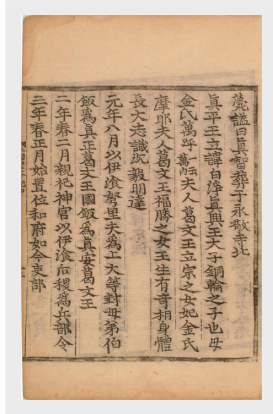 薨諡曰眞智葬于永敬寺北
眞平王立諱白淨眞興王太子銅輪之子也母
金氏萬呼 萬內 夫人葛文王立宗之女妃金氏
摩耶夫人葛文王福勝之女王生有奇相身體
長大志識沉毅明達
元年八月以伊飡弩里夫爲上大等封母弟伯
飯爲眞正葛文王國飯爲眞安葛文王
二年春二月親祀神宮以伊飡后稷爲兵部令
三年春正月始置位和府如今吏部